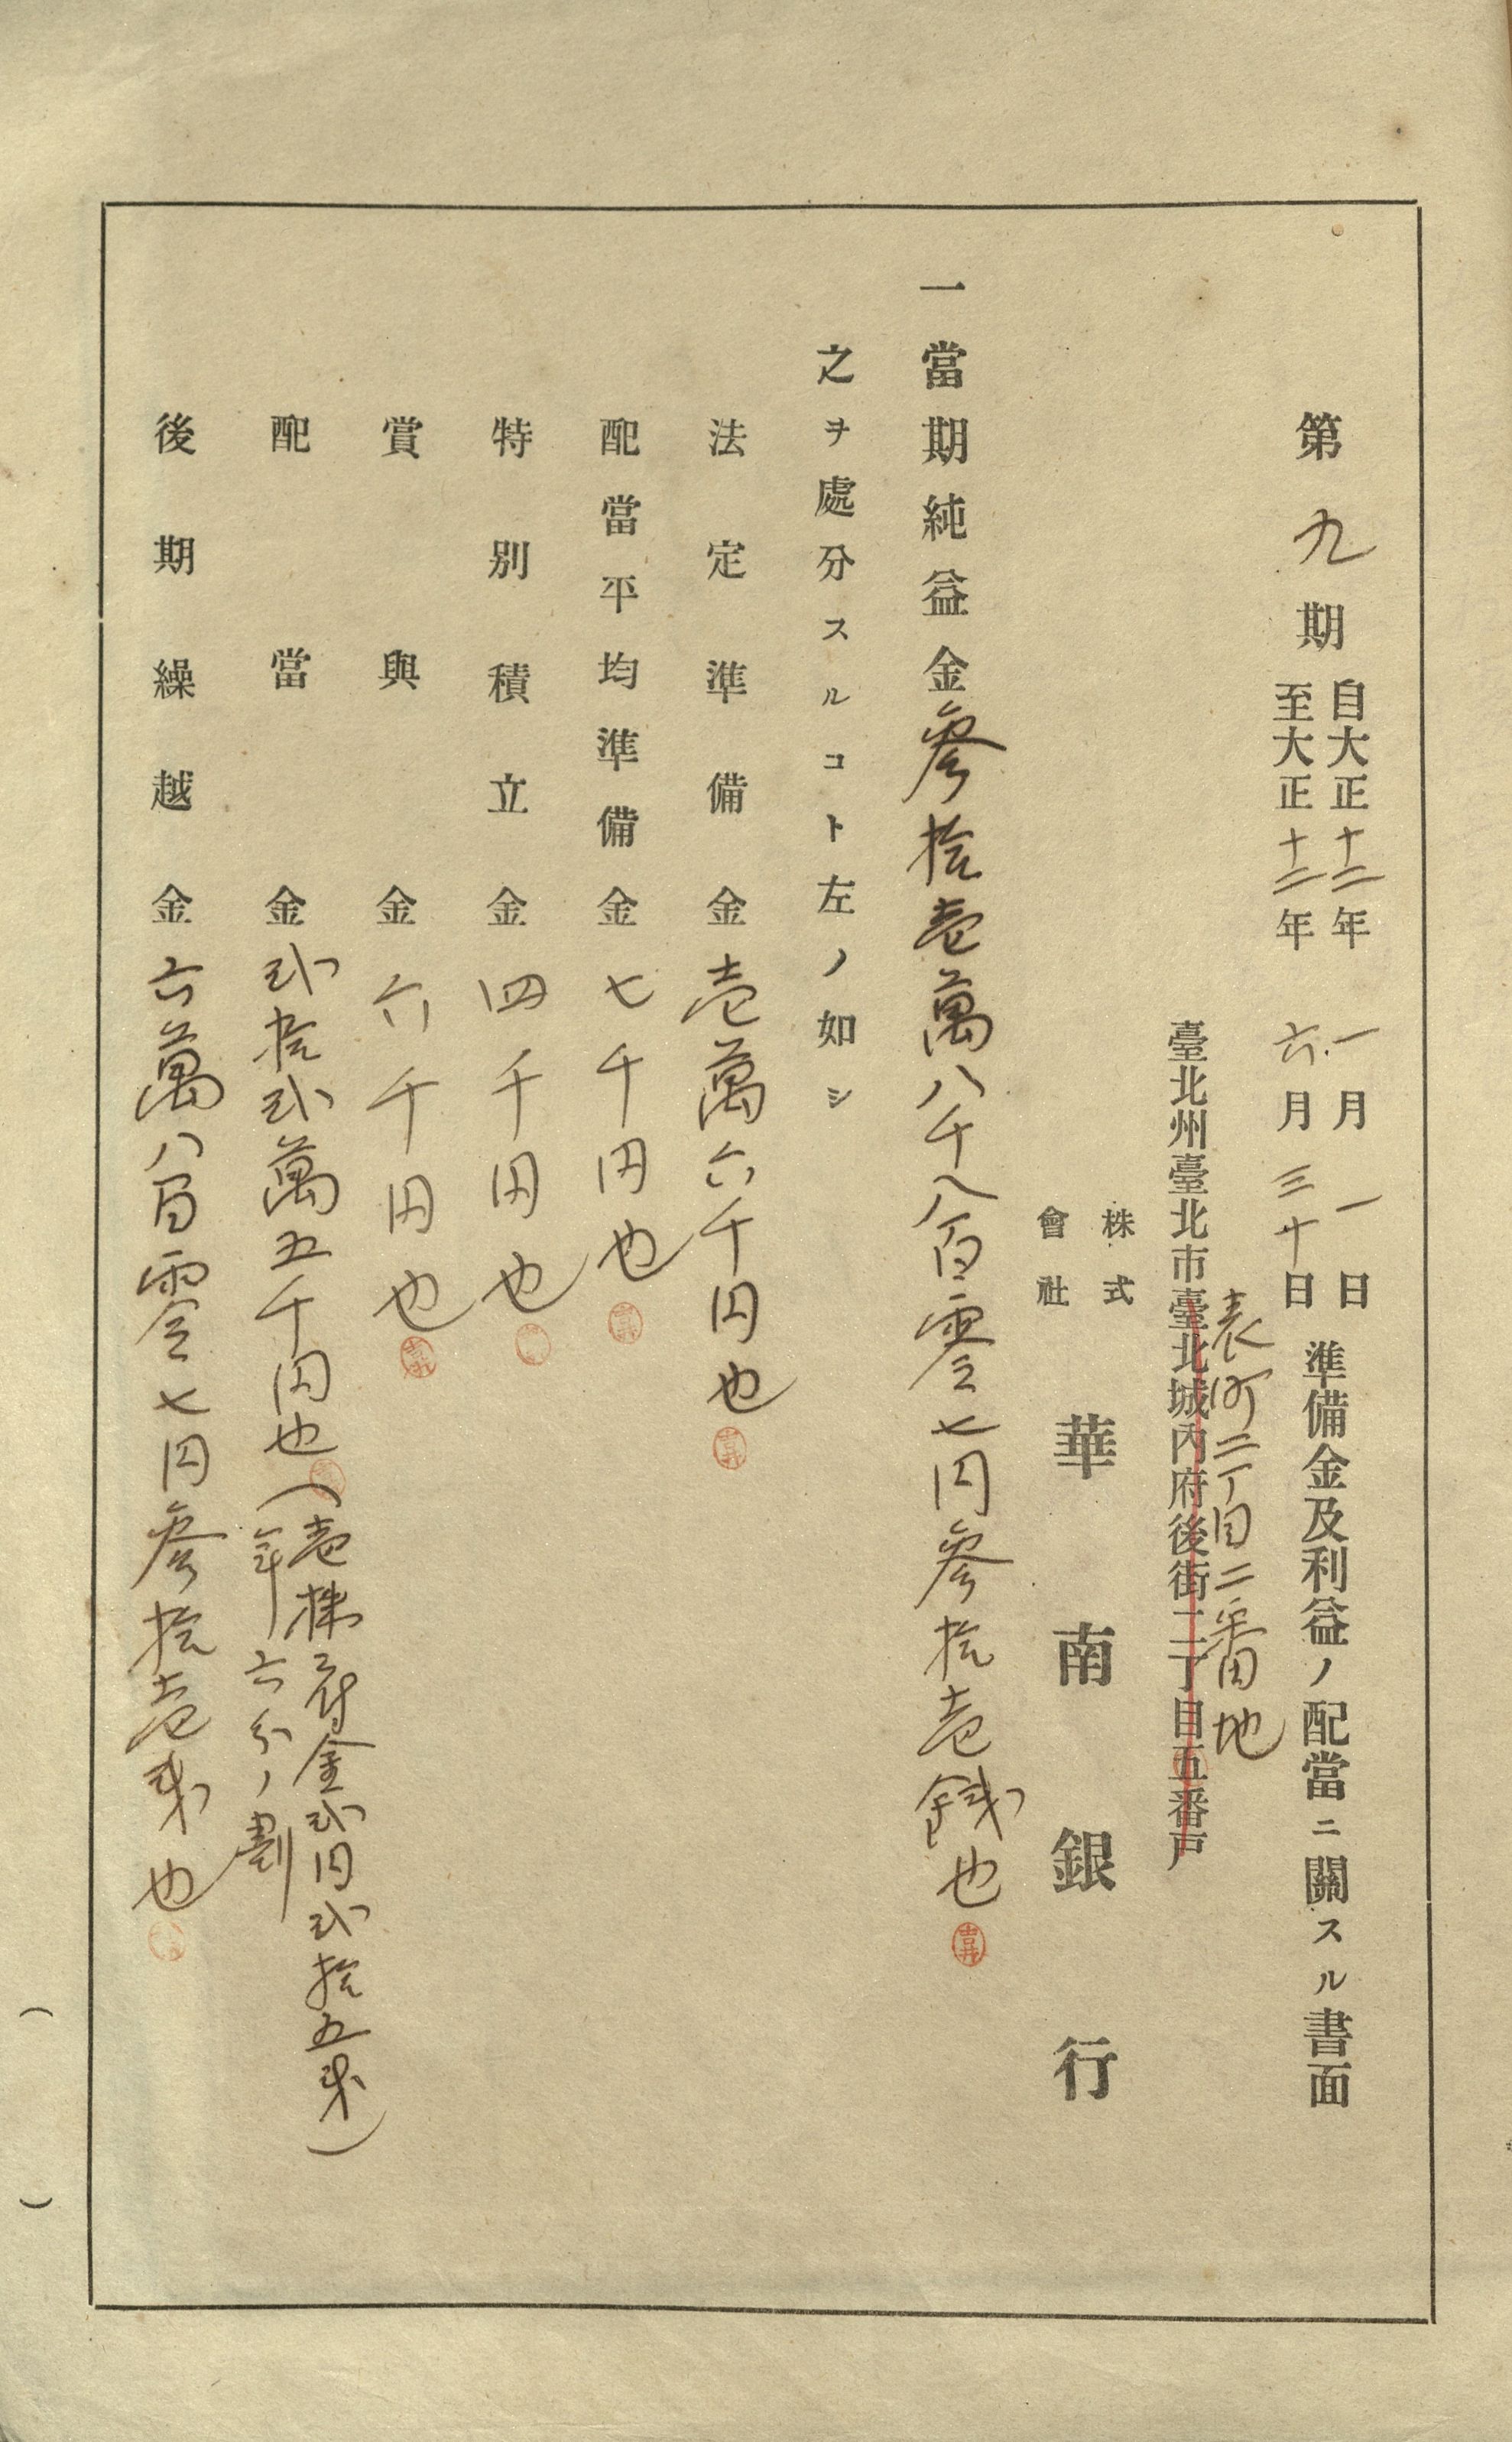 第九期自大正十二年一月一日
至大正十二年六月三十日
準備金及利益ノ配當ニ關スル書面
表町二丁目二番地
臺北州臺北市臺北城內府後街二丁目五番戸
株式
會社
華南銀行
一當期純益金參拾壱萬八千八百零七円參拾壱錢也
之ヲ處分スルコト左ノ如シ
法定準備金壱萬六千円也
配當平均準備金七千円也
特別積立金四千円也
賞與金六千円也
配當金弐拾弐萬五千円也(壱株ニ付金弐円弐拾五戋)
年六分ノ割
後期繰越金六萬八百零七円參拾壱戋也
( )